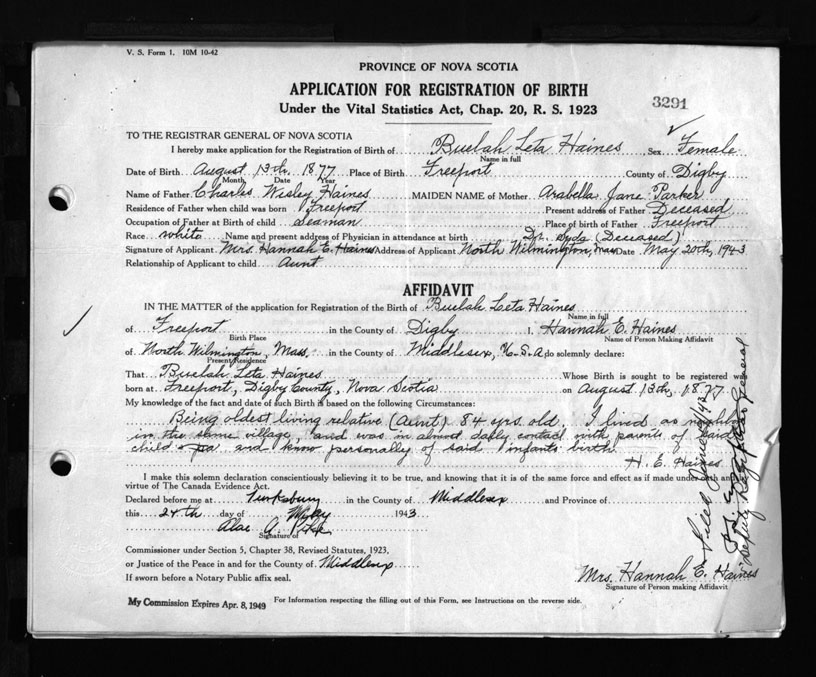 V. S. Form 1. 10M 10-42
PROVINCE OF NOVA SCOTIA
APPLICATION FOR REGISTRATION OF BIRTH
3291
Under the Vital Statistics Act, Chap. 20, R. S. 1923
TO THE REGISTRAR GENERAL OF NOVA SCOTIA
I hereby make application for the Registration of Birth of Buelah Leta Haines Sex Female
Name in full
Date of Birth August 13th, 1877 Place of Birth Freeport County of Digby
Month Date Year
Name of Father Charles Wesley Haines MAIDEN NAME of Mother Arabella Jane Parker
Residence of Father when child was born Freeport Present address of Father Deceased
Occupation of Father at Birth of child Seaman Place of birth of Father Freeport
Race white Name and present address of Physician in attendance at birth Dr. (Deceased)
Signature of Applicant Mrs. Hannah E. Haines Address of Applicant North Wilmington, Mass Date May 20th, 1943
Relationship of Applicant to child Aunt
AFFIDAVIT
IN THE MATTER of the application for Registration of the Birth of Buelah Leta Haines
Name in full
of Freeport in the County of Digby I, Hannah E. Haines
Birth Place Name of Person Making Affidavit
of North Wilmington, Mass. in the County of Middlesex, U.S.A. do solemnly declare:
Present Residence
That Buelah Leta Haines Whose Birth is sought to be registered was
born at Freeport, Digby County, Nova Scotia on August 13th, 1877
My knowledge of the fact and date of such Birth is based on the following Circumstances:
Being oldest living relative (Aunt) 84 yrs. old. I lived as neighbor
in the same village, and was in almost daily contact with parents of said
child and know personally of said infants birth.
H. E. Haines
I make this solemn declaration conscientiously believing it to be true, and knowing that it is of the same force and effect as if made under oath and
virtue of The Canada Evidence Act.
Declared before me at Tewksbury in the County of Middlesex and Province of
this 24th day of May 1943
Signature of
Commissioner under Section 5, Chapter 38, Revised Statutes, 1923,
or Justice of the Peace in and for the County of Middlesex
If sworn before a Notary Public affix seal.
Mrs. Hannah E. Haines
Signature of Person making Affidavit
My Commission Expires Apr. 8, 1949
For Information respecting the filling out of this Form, see Instructions on the reverse side.
Filed June
Deputy Registrar General